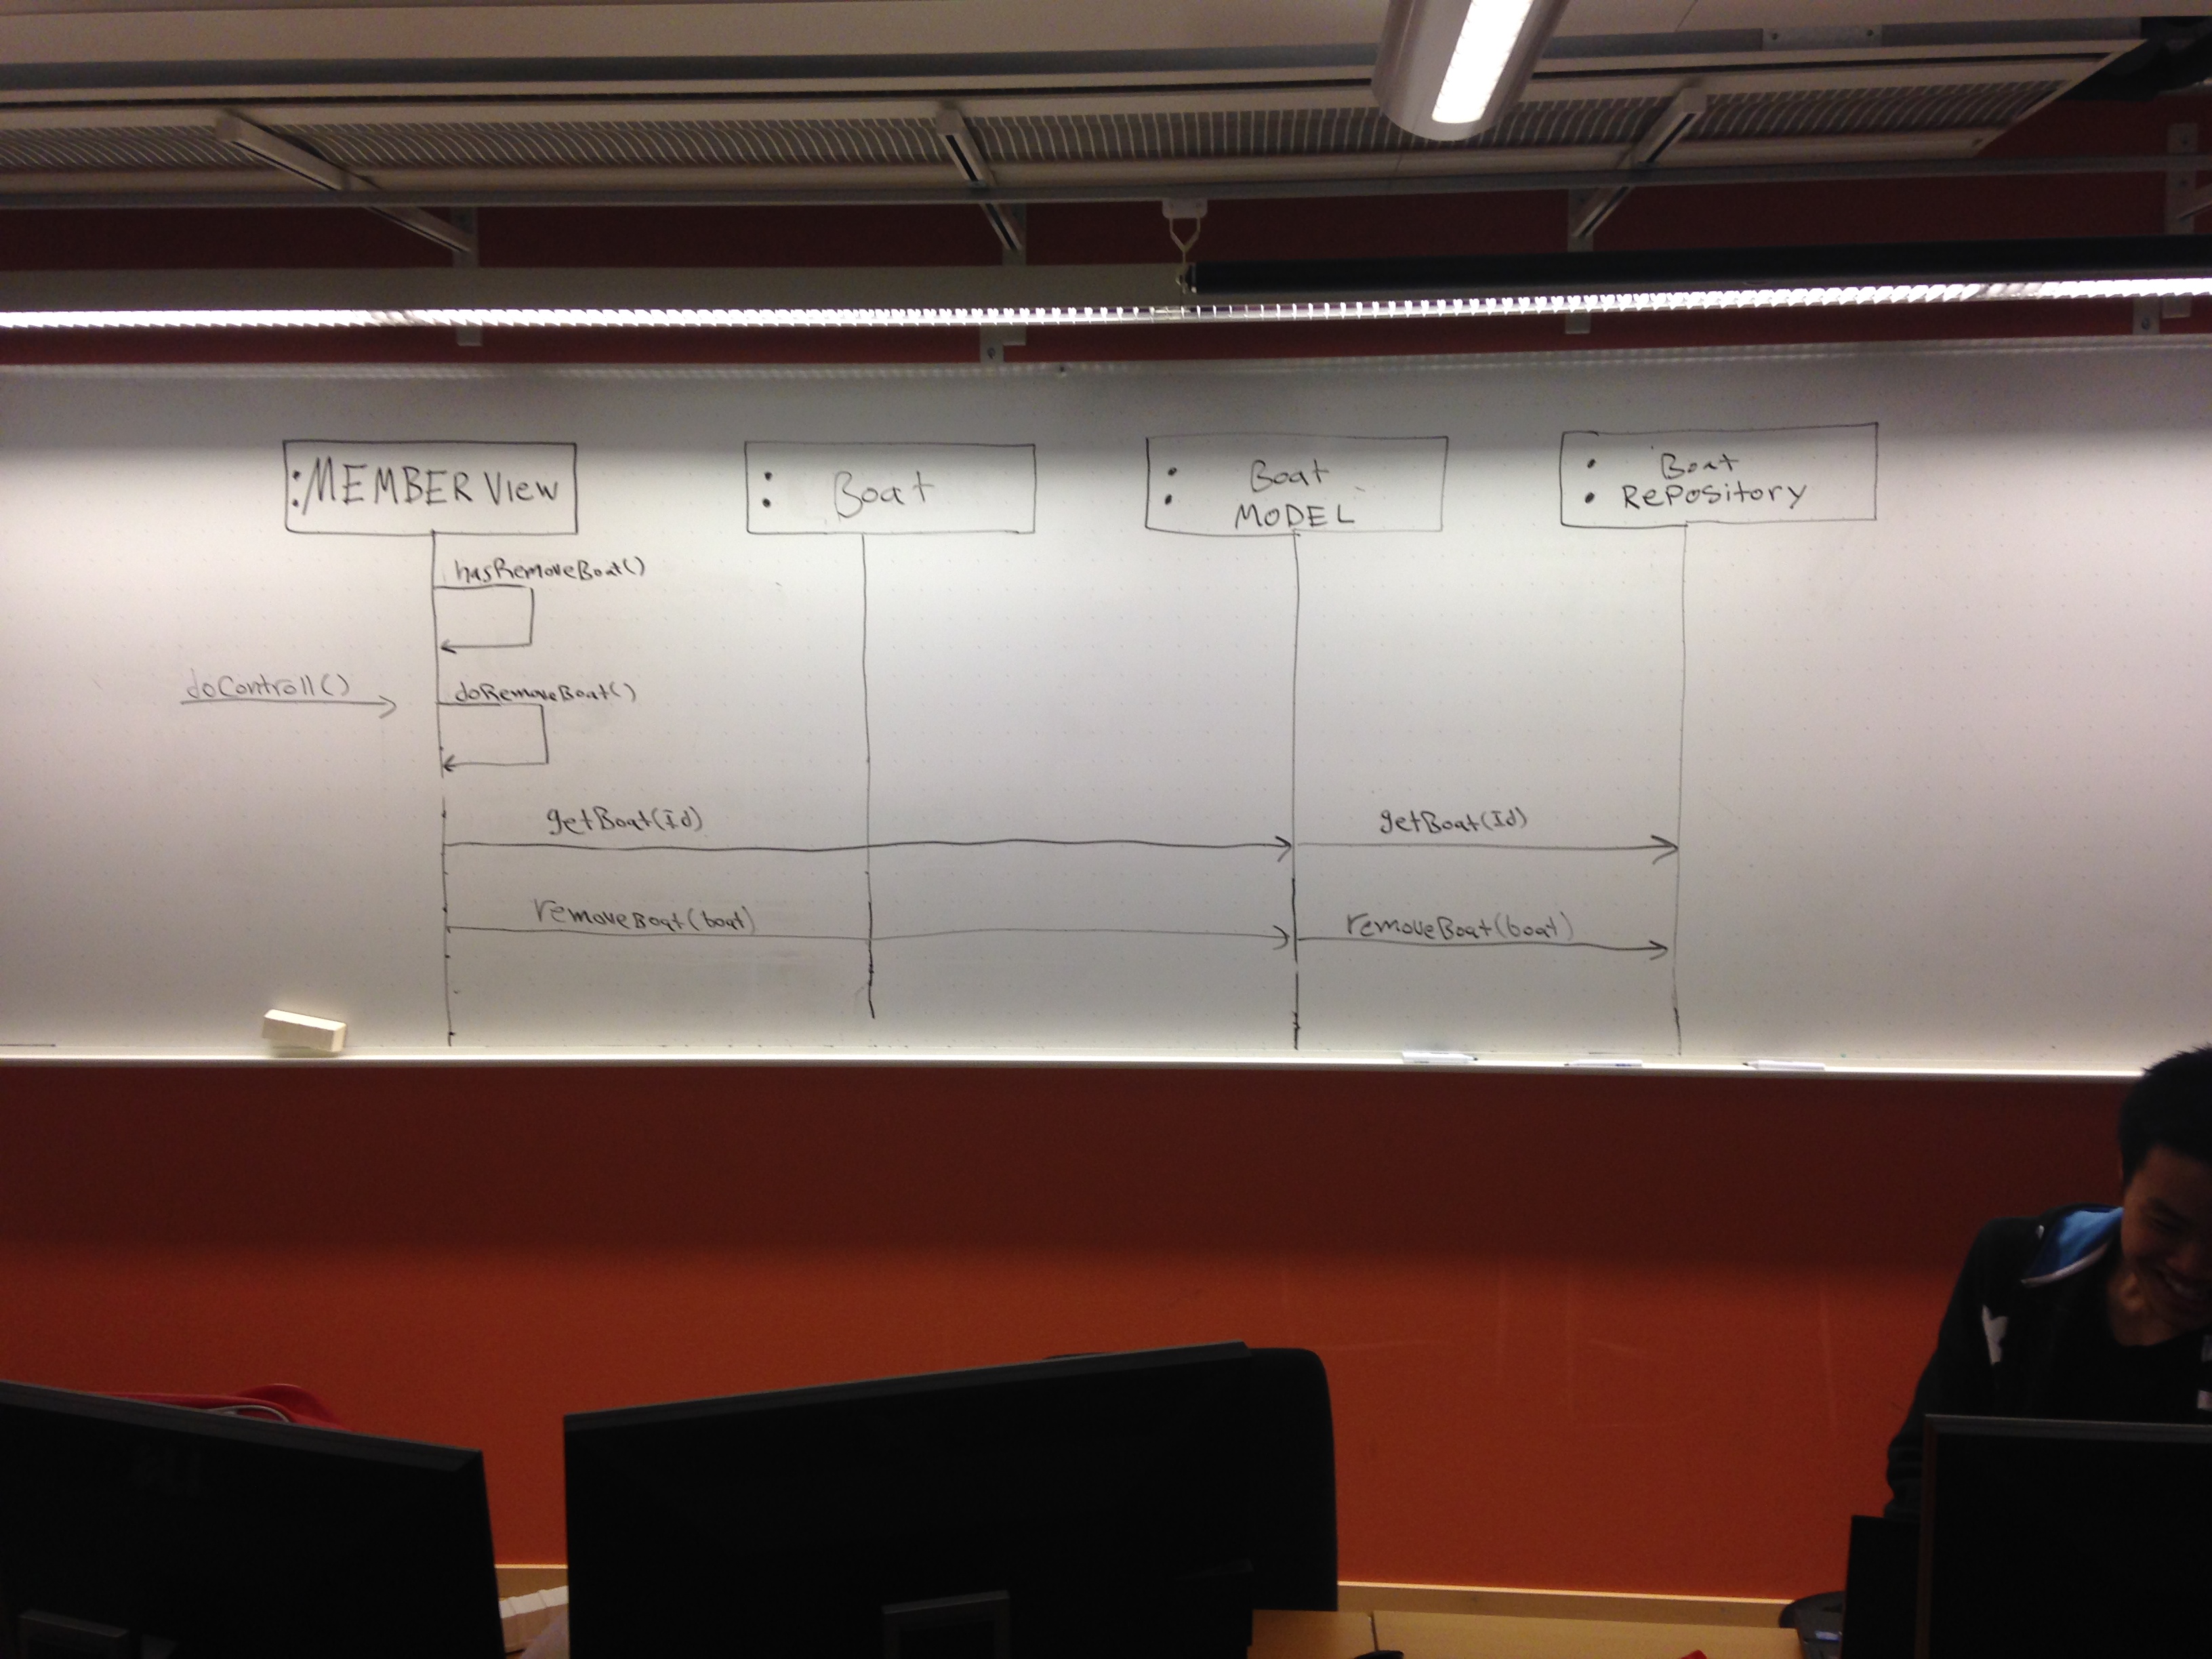 :MEMBER View
: Boat
: Boat
MODEL
: Boat
Repository
hasRemoveBoat()
doControll()
doRemoveBoat()
getBoat(Id)
getBoat(Id)
removeBoat(boat)
removeBoat(boat)